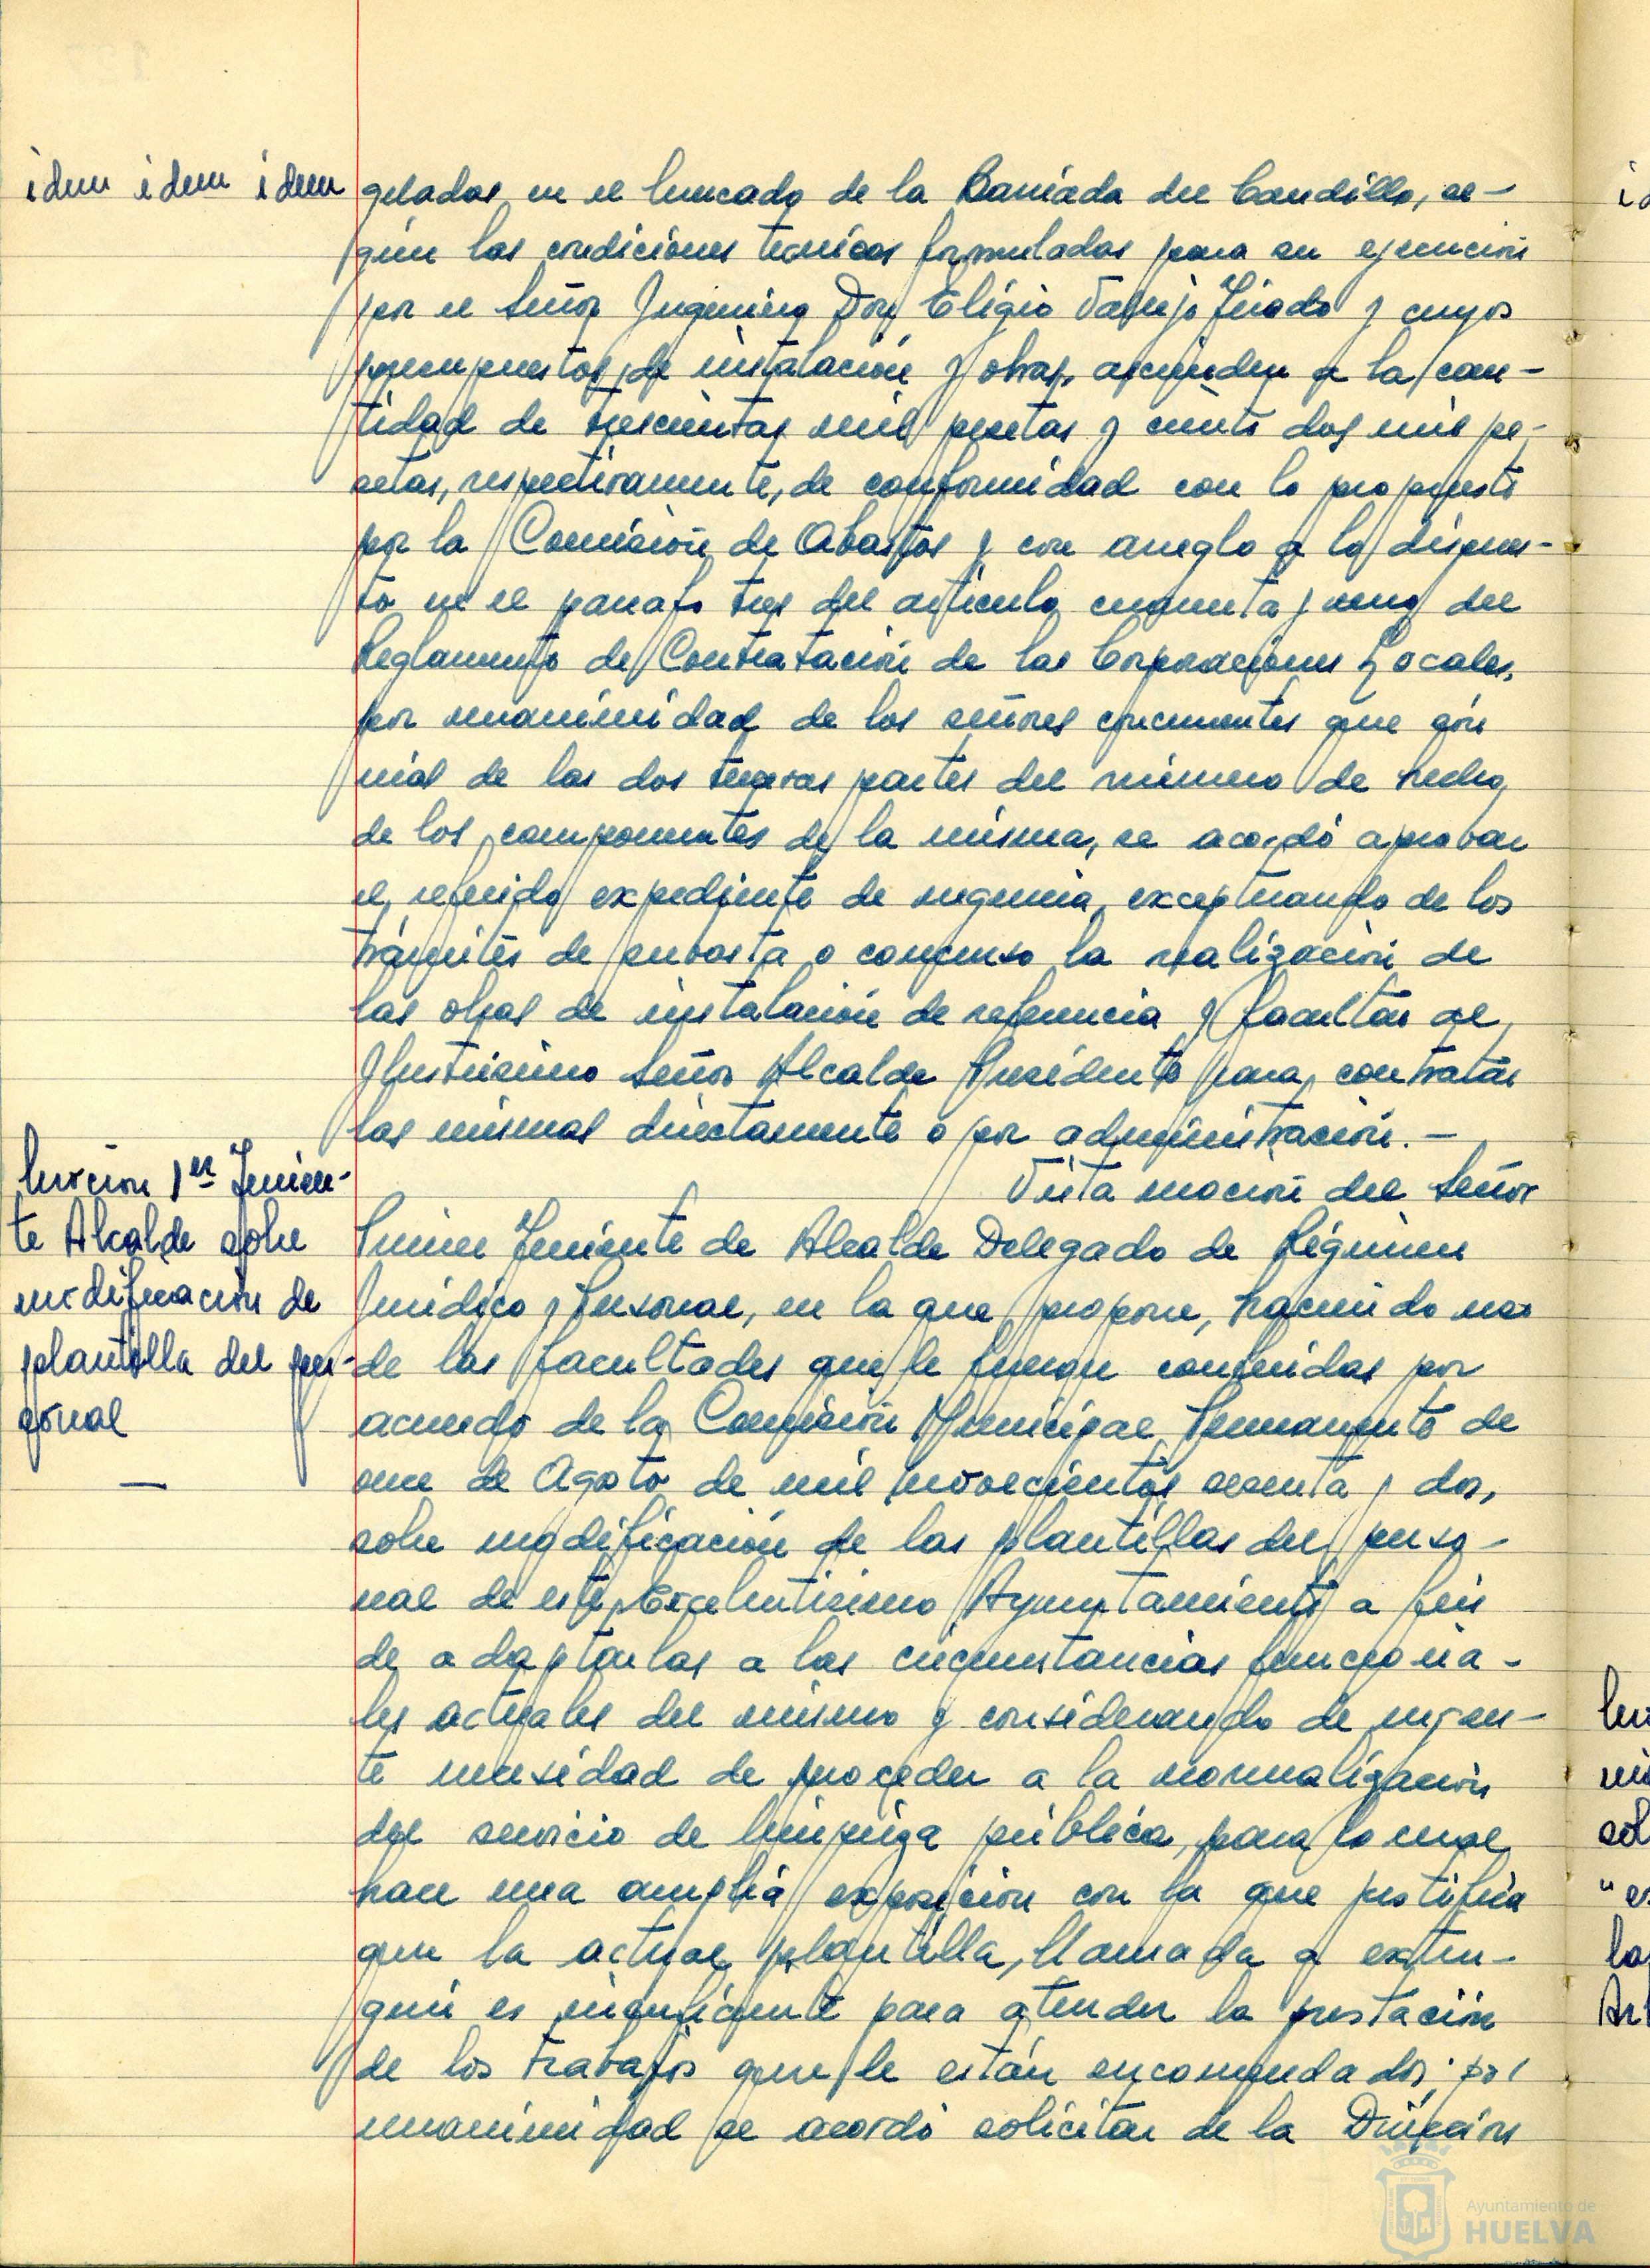 idem idem idem
gelados, en el Mercado de la Barriada del Caudillo, se-
gún las condiciones tecnicas formuladas para su ejecución
por el Señor Ingeniero Don Eligio Tirado y cuyos
presupuestos de instalación y obras, ascienden a la can-
tidad de trescientas mil pesetas y ciento dos mil pe-
setas, respectivamente, de conformidad con lo propuesto
por la Comisión de Abastos y con arreglo a lo dispues-
to en el parrafo tres del articulo cuarenta y uno del
Reglamento de Contratación de las Corporaciones Locales,
por unanimidad de los señores concurrentes que son
más de las dos terceras partes del número de hecho
de los componentes de la misma, se acordó aprobar
el referido expediente de urgencia, exceptuando de los
trámites de subasta o concurso la realización de
las obras de instalación de referencia y facultar al
Ilustrisimo Señor Alcalde Presidente para contratar
las mismas directamente o por administración.—
Moción 1er Tenien-
te Alcalde sobre
modificación de
plantilla del per-
sonal
—
Vista moción del Señor
Primer Teniente de Alcalde Delegado de Régimen
Jurídico y Personal, en la que propone, haciendo uso
de las facultades que le fueron conferidas por
acuerdo de la Comisión Municipal Permanente de
once de Agosto de mil novecientos sesenta y dos,
sobre modificación de las plantillas del perso-
nal de este Excelentisimo Ayuntamiento a fin
de adaptarlas a las circunstancias funciona-
les actuales del mismo y considerando de urgen-
te necesidad de proceder a la normalización
del servicio de limpieza pública, para lo cual
hace una amplia exposición con la que justifica
que la actual plantilla, llamada a extin-
guir es insuficiente para atender la prestación
de los trabajos que le están encomendados; por
unanimidad se acordó solicitar de la Dirección
Ayuntamiento de
HUELVA